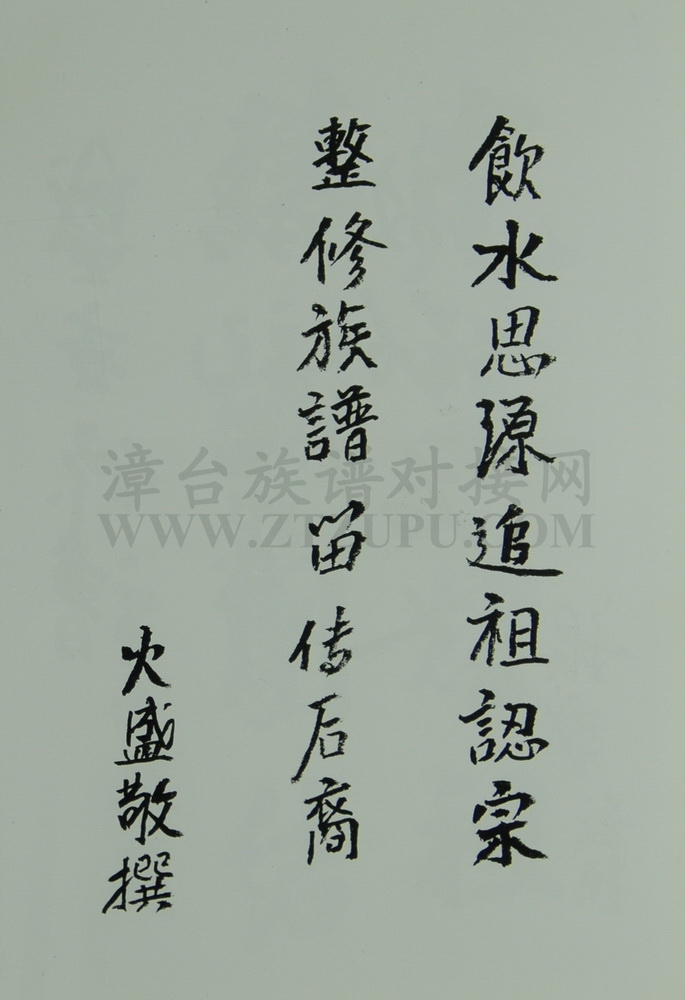 飲水思源追祖認宗
整修族譜留传后裔
火盛敬撰
漳台族谱对接网
WWW.ZTZUPU.COM